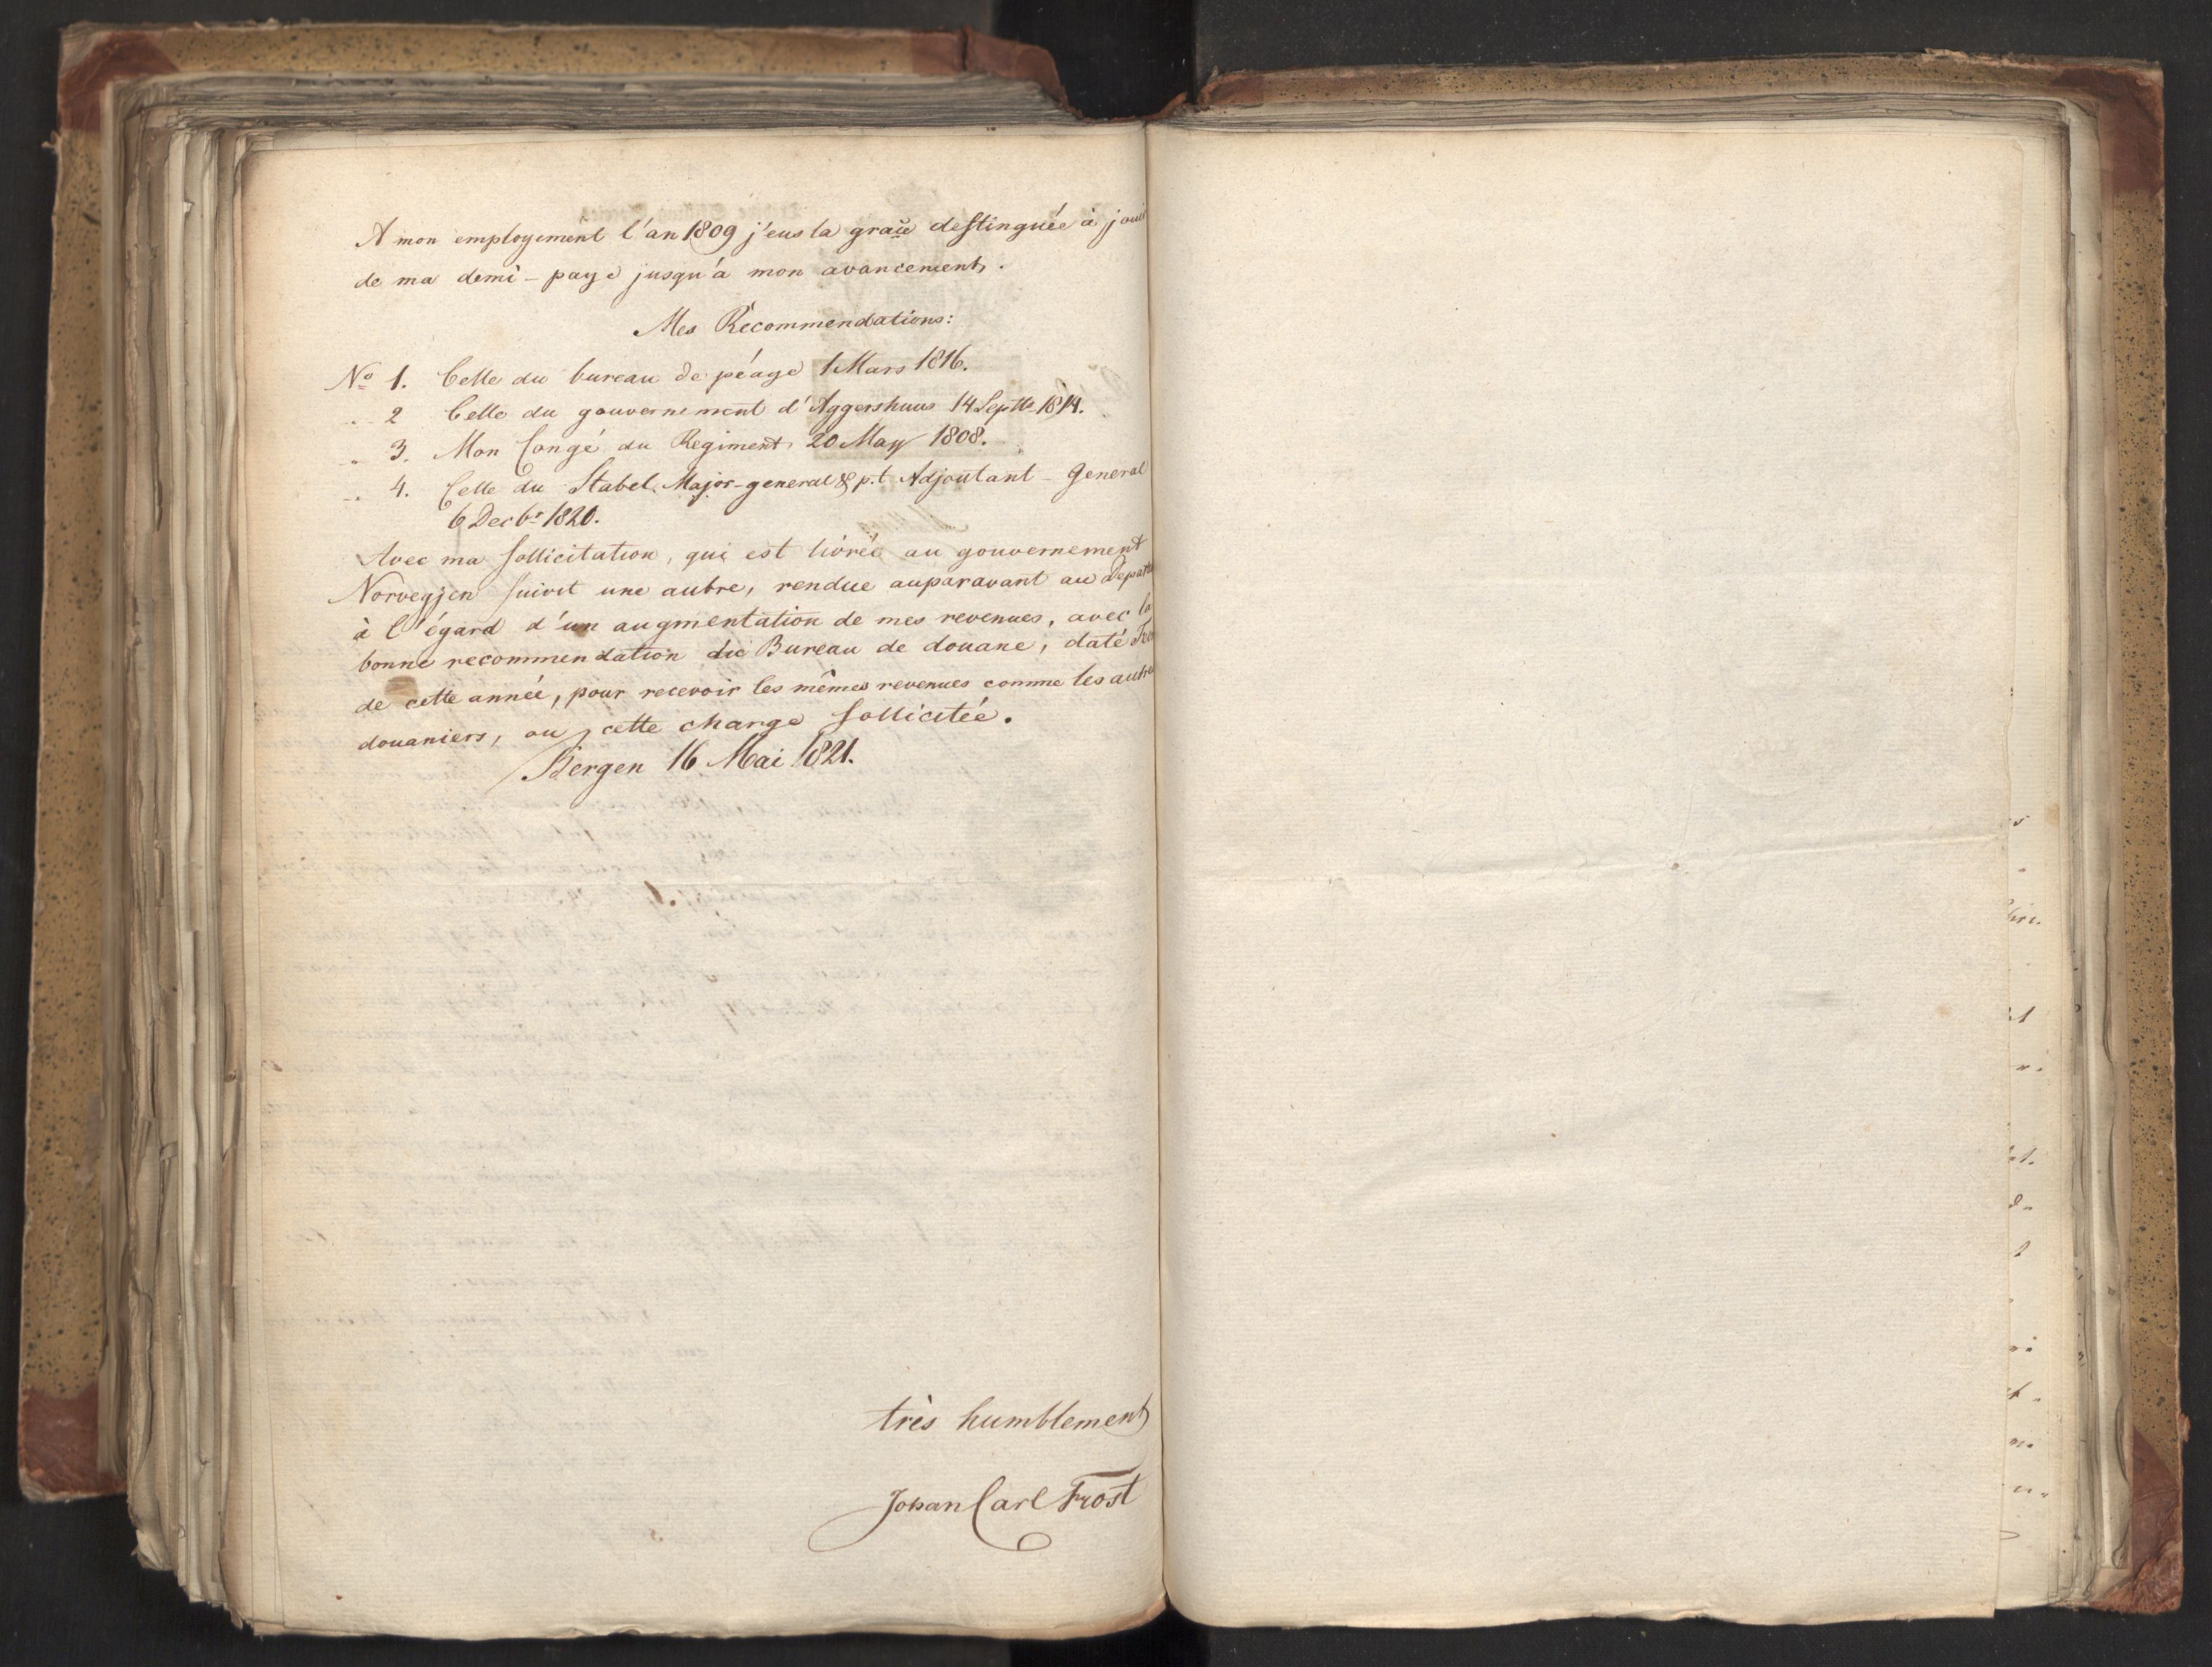 A mon employement l'an 1809 j'eus la grace destinguée à jouir
de ma demi-paye jusqu'a mon avancement.
Mes Recommendations:
No 1. Celle du bureau de péage 1 Mars 1816.
.. 2 Celle du gouvernement d'Aggershuus 14 Septbr 1814.
.. 3. Mon Congé du Regiment 20 May 1808.
.. 4. Celle du Stabel, Major-general & p.t. Adjoutant-General
6 Decbr 1820.
Avec ma sollicitation, qui est livrée au gouvernement
Norvegjen suivit une autre, rendue auparavant au
à l'égard d'un augmentation de mes revenues, avec la
bonne recommendation du Bureau de douane, daté
de cette année, pour recevoir les mêmes revenues comme les autres
douaniers, ou cette charge sollicitée.
Bergen 16 Mai 1821.
très humblement
Johan Carl Frost